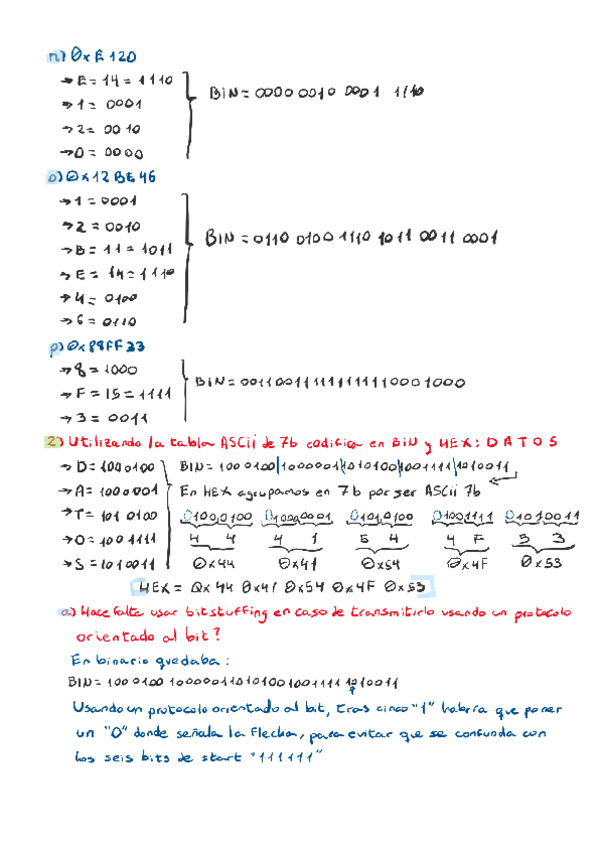 n) 0xE120
→ E = 14 = 1110
→ 1 = 0001
→ 2 = 0010
→ 0 = 0000
BIN = 0000 0010 0001 1110
o) 0x12BE46
→ 1 = 0001
→ 2 = 0010
→ B = 11 = 1011
→ E = 14 = 1110
→ 4 = 0100
→ 6 = 0110
BIN = 0110 0100 1110 1011 0011 0001
p) 0x88FF33
→ 8 = 1000
→ F = 15 = 1111
→ 3 = 0011
BIN = 001100111111111110001000
2) Utilizando la tabla ASCii de 7b codifica en BiN y HEX: D A T O S
→ D = 1000100
→ A = 1000001
→ T = 1010100
→ O = 1001111
→ S = 1010011
BIN = 1000100|1000001|1010100|1001111|1010011
En HEX agrupamos en 7b por ser ASCii 7b
01000100 01000001 01010100 01001111 01010011
4 4 4 1 5 4 4 F 5 3
0x44 0x41 0x54 0x4F 0x53
HEX = 0x44 0x41 0x54 0x4F 0x53
a) Hace falta usar bitstuffing en caso de transmitirlo usando un protocolo
orientado al bit?
En binario quedaba:
BIN = 1000100 1000001101010010011111010011
Usando un protocolo orientado al bit, tras cinco "1" habría que poner
un "0" donde señala la flecha, para evitar que se confunda con
los seis bits de start "111111"